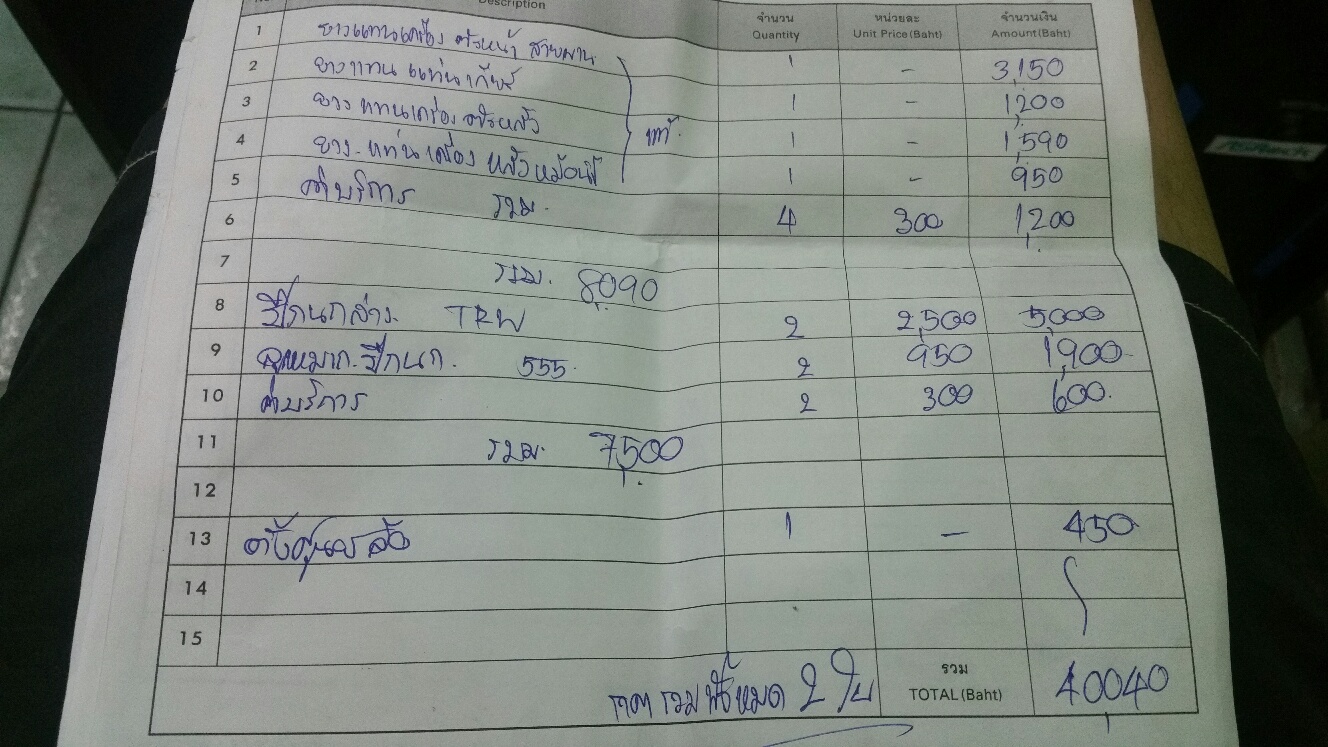 Description จำนวน Quantity หน่วยละ Unit Price (Baht) จำนวนเงิน Amount (Baht)
1 ยางแทนเครื่อง ตัวหน้า สายพาน 1 - 3,150
2 ยางแทน แท่นเกียร์ 1 - 1,200
3 ยาง แทนเครื่อง ตัวหลัง แท้. 1 - 1,590
4 ยาง. แท่นเครื่อง หลังหม้อน้ำ 1 - 950
5 ค่าบริการ รวม. 4 300 1,200
6
7 รวม. 8,090
8 ปีกนกล่าง. TRW 2 2,500 5,000
9 ลูกหมาก. ปีกนก. 555. 2 950 1,900
10 ค่าบริการ 2 300 600.
11 รวม. 7,500
12
13 ตั้งศูนย์ล้อ 1 - 450
14
15
รวมทั้งหมด 2 ใบ รวม TOTAL (Baht) 40,040